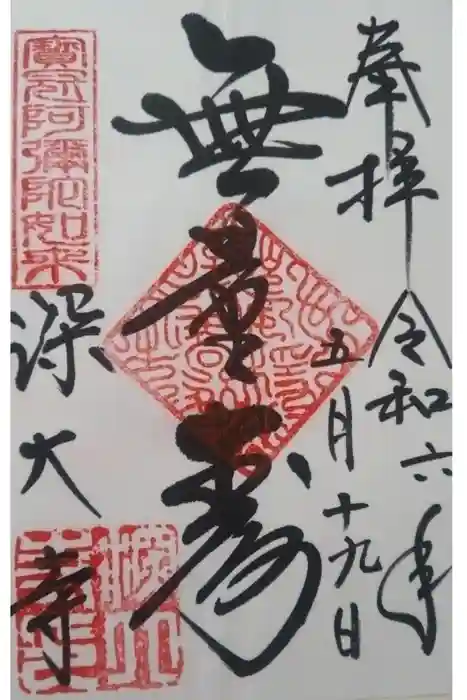 奉拝 令和六年
五月十九日
無量寿
寶冠阿彌陀如来
深大寺